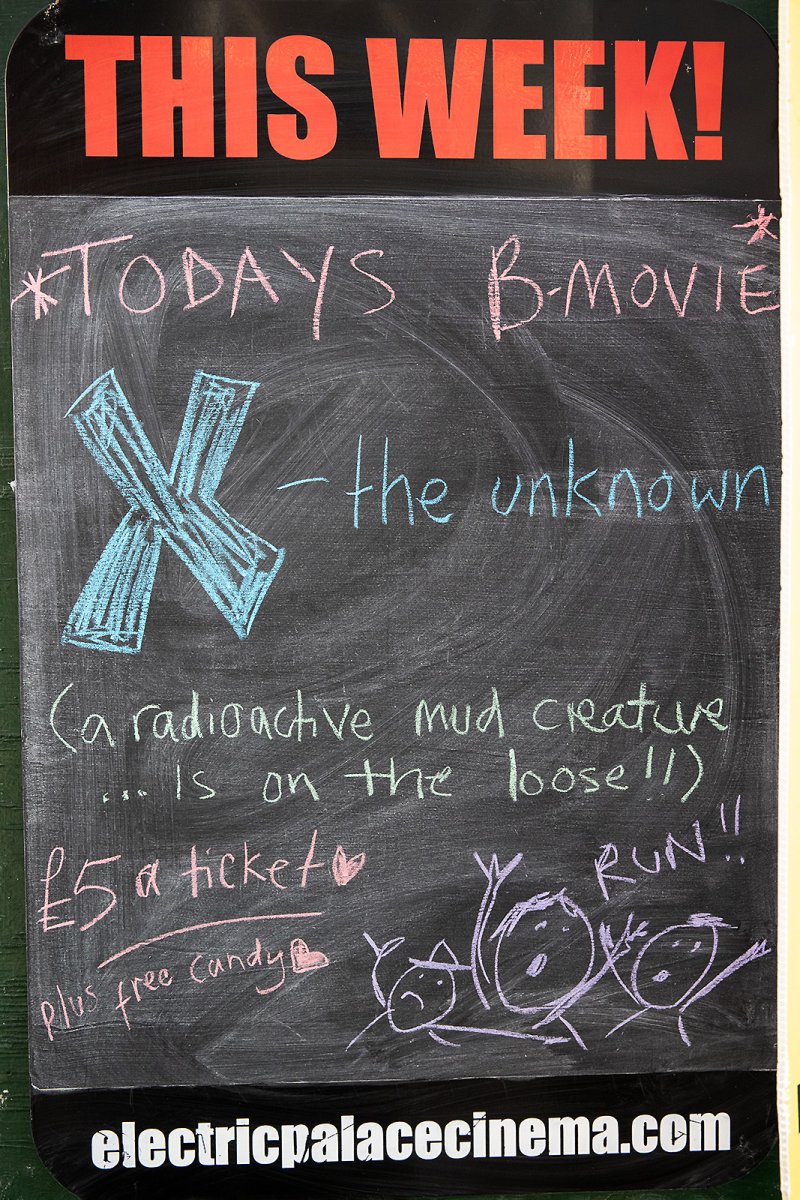 THIS WEEK!
*TODAYS B-MOVIE*
X - the unknown
(a radioactive mud creature
... is on the loose!!)
£5 a ticket
plus free candy
RUN!!
electricpalacecinema.com